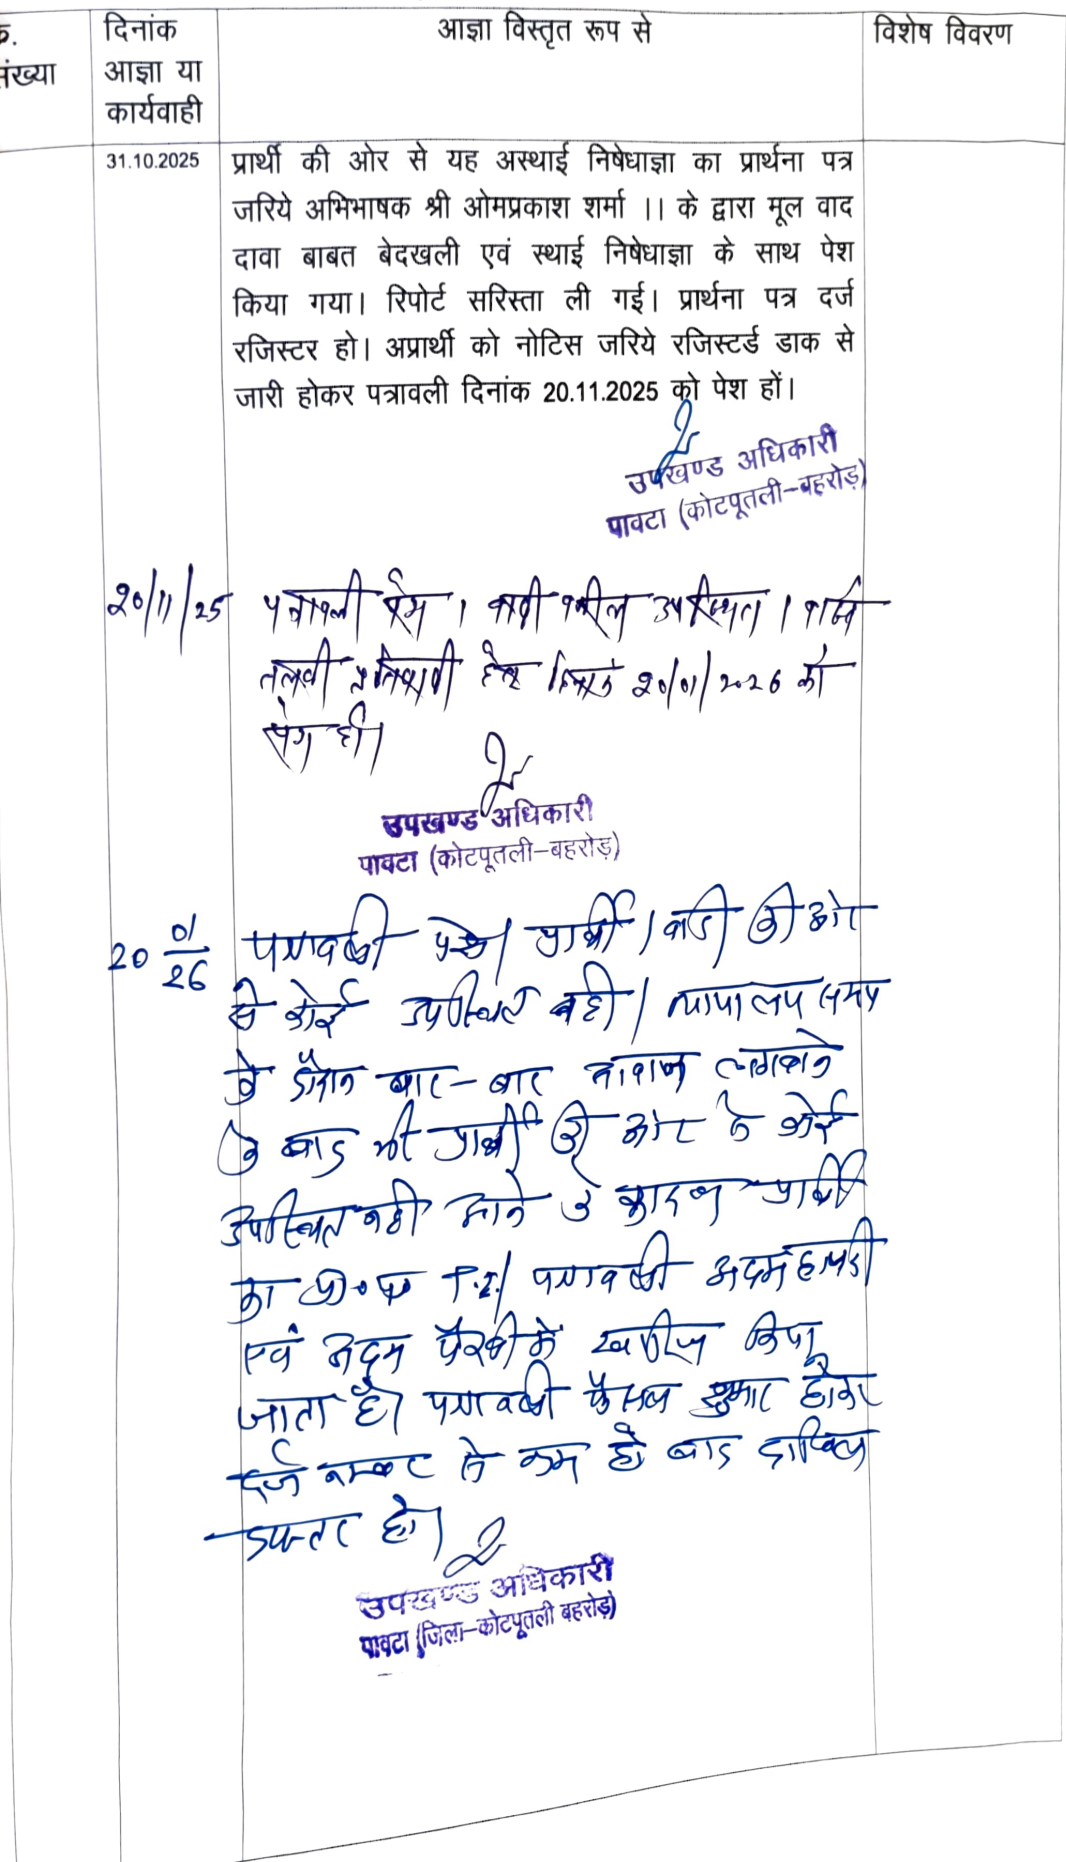 क्र. दिनांक आज्ञा विस्तृत रूप से विशेष विवरण
संख्या आज्ञा या
कार्यवाही
31.10.2025 प्रार्थी की ओर से यह अस्थाई निषेधाज्ञा का प्रार्थना पत्र
जरिये अभिभाषक श्री ओमप्रकाश शर्मा ।। के द्वारा मूल वाद
दावा बाबत बेदखली एवं स्थाई निषेधाज्ञा के साथ पेश
किया गया। रिपोर्ट सरिस्ता ली गई। प्रार्थना पत्र दर्ज
रजिस्टर हो। अप्रार्थी को नोटिस जरिये रजिस्टर्ड डाक से
जारी होकर पत्रावली दिनांक 20.11.2025 को पेश हों।
उपखण्ड अधिकारी
पावटा (कोटपूतली-बहरोड़)
20/11/25 पत्रावली पेश । वादी वकील उपस्थित ।
तलवी प्रतिवादी हेतु दिनांक 20/01/2026 को
पेश हो।
उपखण्ड अधिकारी
पावटा (कोटपूतली-बहरोड़)
20 01/26 पत्रावली पेश। प्रार्थी / वादी की ओर
से कोई उपस्थित नही। न्यायालय समय
के दौरान बार-बार आवाज लगवाने
के बाद भी प्रार्थी की ओर से कोई
उपस्थित नही आने के कारण प्रार्थी
का प्रा०प० T.I/ पत्रावली अदम हाजरी
एवं अदम पैरवी मे खारीज किया
जाता है। पत्रावली फैसल शुमार होकर
दर्ज नम्बर से कम हो बाद दाखिल
दफ्तर हो।
उपखण्ड अधिकारी
पावटा (जिला-कोटपूतली बहरोड़)